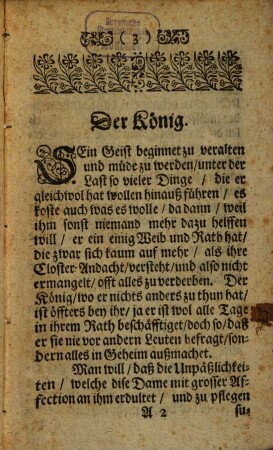 Bayerische
( 3 )
Der König.
SEin Geist beginnet zu veralten
und müde zu werden/unter der
Last so vieler Dinge / die er
gleichtwol hat wollen hinauß führen / es
koste auch was es wolle / da dann / weil
ihm sonst niemand mehr dazu helffen
will / er ein einig Weib und Rath hat/
die zwar sich kaum auf mehr / als ihre
Closter-Andacht/verstehet/und also nicht
ermangelt/ offt alles zu verderben. Der
König/wo er nichts anders zu thun hat/
ist öffters bey ihr/ ja er ist wol alle Tage
in ihrem Rath beschäfftiget/doch so/daß
er sie nie vor andern Leuten befragt/son-
dern alles in Geheim außmachet.
Man will / daß die Unpäßlichkei-
ten / welche dise Dame mit grosser Af-
fection an ihm erdultet / und zu pflegen
A 2
su-